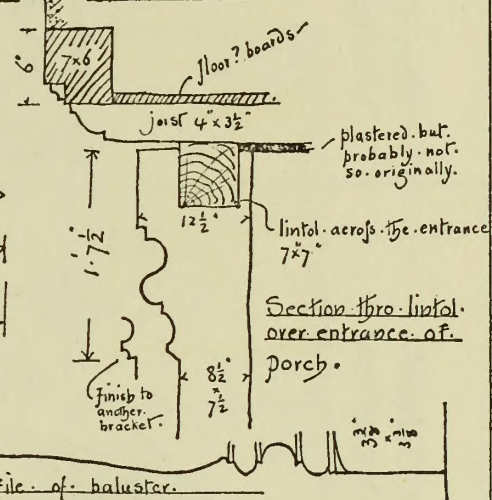 7×6
6"
floor? boards
joist 4"×3½"
plastered but.
probably. not.
so. originally.
12½"
lintol. across. the. entrance
7"×7"
1'.7½"
Section thro. lintol.
over entrance. of.
porch.
8½"
×
7½
finish to
another.
bracket.
file. of. baluster.